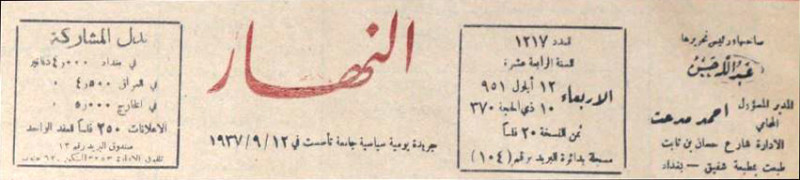 صاحبها ورئيس تحريرها
عبدالله حسن
المدير المسؤول
المحامي احمد مدحت
الادارة شارع حسان بن ثابت
طبعت بمطبعة شفيق - بغداد
العدد ١٢١٧
السنة الرابعة عشرة
الاربعاء ١٢ أيلول ٩٥١
١٠ ذي الحجة ٣٧٠
ثمن النسخة ٢٠ فلساً
مسجلة بدائرة البريد برقم (١٠٤)
النهار
جريدة يومية سياسية جامعة تأسست في ١٩٣٧/٩/١٢
بدل المشاركة
في بغداد ٤,٠٠٠ دنانير
في العراق ٤,٥٠٠
في الخارج ٥,٠٠٠
الاعلانات ٢٥٠ فلساً للعقد الواحد
صندوق البريد رقم ١٣
تلفون الادارة